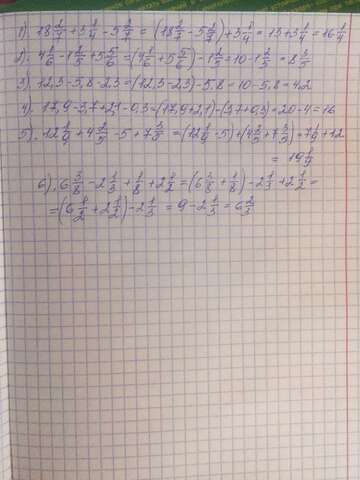 1) 18 2/7 + 3 1/4 - 5 2/7 = (18 2/7 - 5 2/7) + 3 1/4 = 13 + 3 1/4 = 16 1/4
2). 4 1/6 - 1 2/5 + 5 5/6 = (4 1/6 + 5 5/6) - 1 2/5 = 10 - 1 2/5 = 8 3/5
3) 12,3 - 5,8 - 2,3 = (12,3 - 2,3) - 5,8 = 10 - 5,8 = 4,2
4). 17,9 - 3,7 + 2,1 - 0,3 = (17,9 + 2,1) - (3,7 + 0,3) = 20 - 4 = 16
5). 12 1/9 + 4 2/5 - 5 + 7 3/5 = (12 1/9 - 5) + (4 2/5 + 7 3/5) = 7 1/9 + 12
= 19 1/9
6). 6 3/8 - 2 1/3 + 1/8 + 2 1/2 = (6 3/8 + 1/8) - 2 1/3 + 2 1/2 =
= (6 1/2 + 2 1/2) - 2 1/3 = 9 - 2 1/3 = 6 2/3